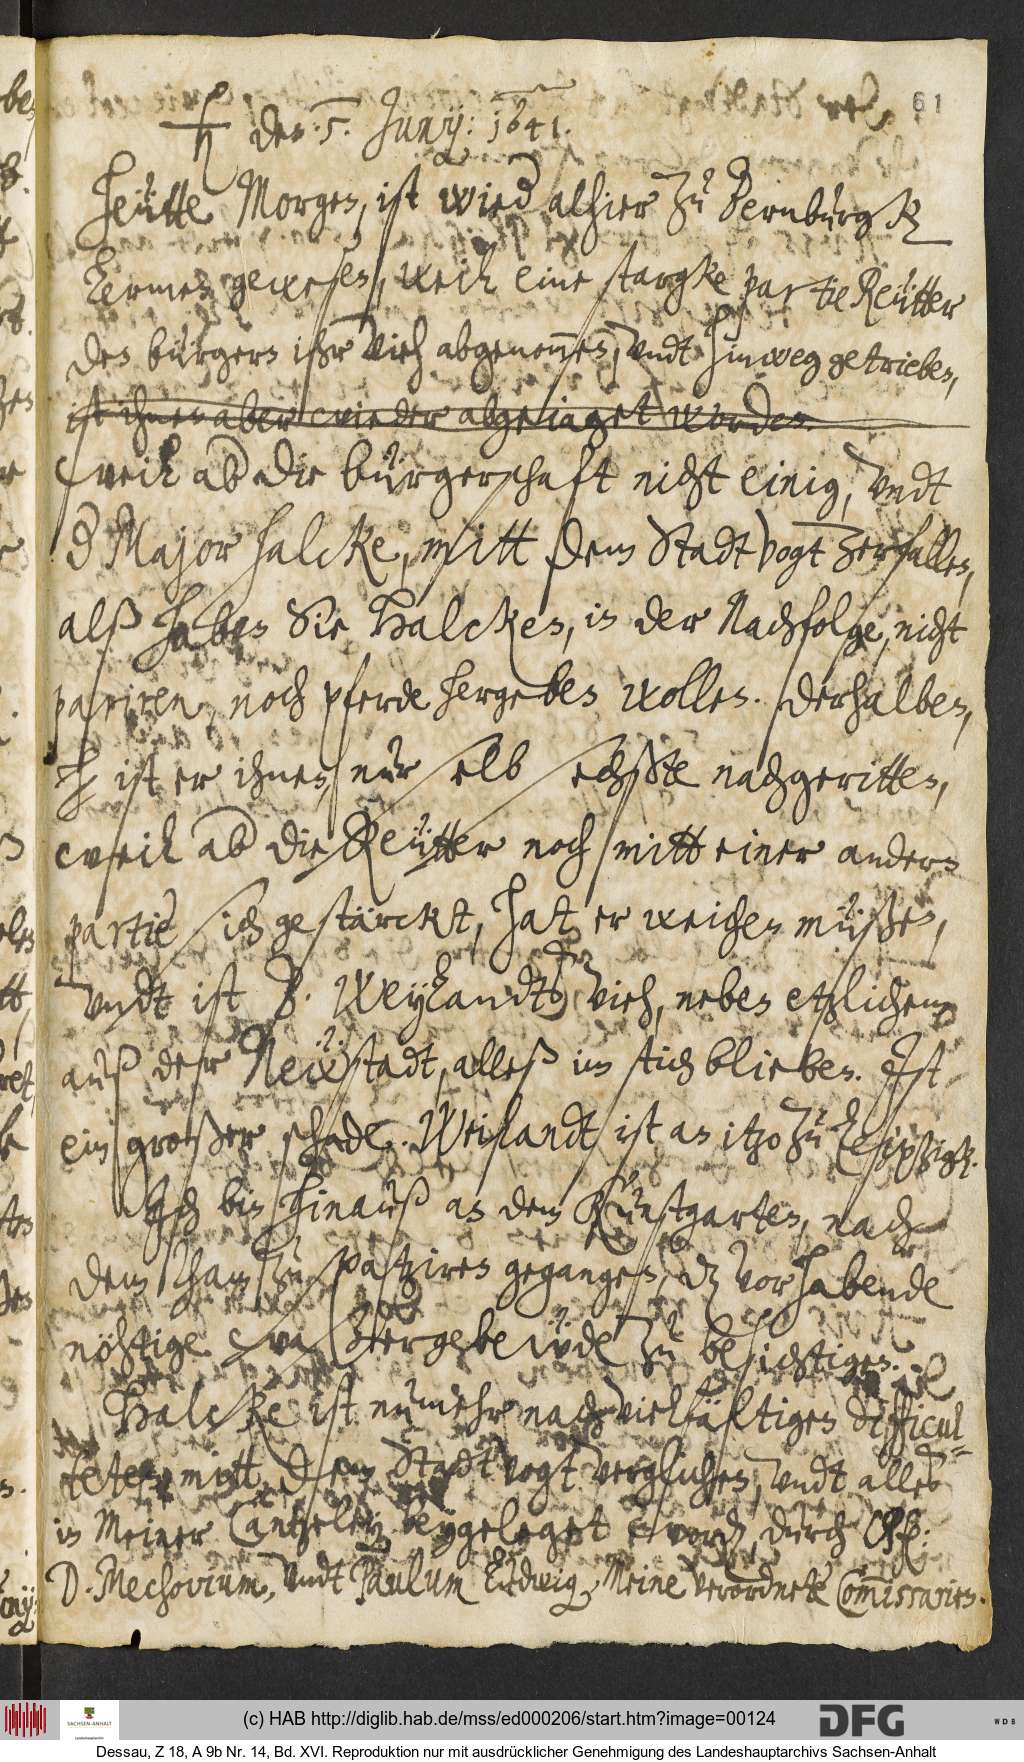 61
♄ den: 5. Junij: 1641.
Heütte Morgen, ist wied alhier zu Bernburgk
Lermen gewesen, weil eine stargke partie Reütter
den bürgern ihr Vieh abgenommen, vndt hinweg getrieben,
ist ihnen aber wieder abgeiaget worden.
weil ab die bürgerschaft nicht einig, vndt
d Major halcke, mitt dem Stadtvogt zerfallen,
alß haben Sie Halcken, in der Nachfolge, nicht
pariren, noch pferde hergeben wollen. Derhalben,
ist er ihnen, nur selb sechßte nachgeritten,
weil ab die Reütter noch mitt einer andern
partie sich gestärckt, hat er weichen müßen,
vndt ist D. Weylandts Vieh, neben etzlichem
auß der Neüstadt, alleß im stich blieben. Ist
ein großer schade. Weilandt ist an itzo zu Leiptzigk.
Ich bin hinauß an den Kunstgarten, nach
dem ham zu spatziren gegangen, dz vorhabende
nöhtige waßergebeüde zu besichtigen.
Halcke ist numehr nach vielfältigen difficul=
teten mitt dem Stadtvogt verglichen, vndt alles
in Meiner Cantzeley beygeleget word, durch
D. Mechovium, vndt Paulum Ludwig, Meine verordnete Commissarien.
(c) HAB http://diglib.hab.de/mss/ed000206/start.htm?image=00124
SACHSEN-ANHALT
DFG
WDB
Dessau, Z 18, A 9b Nr. 14, Bd. XVI. Reproduktion nur mit ausdrücklicher Genehmigung des Landeshauptarchivs Sachsen-Anhalt